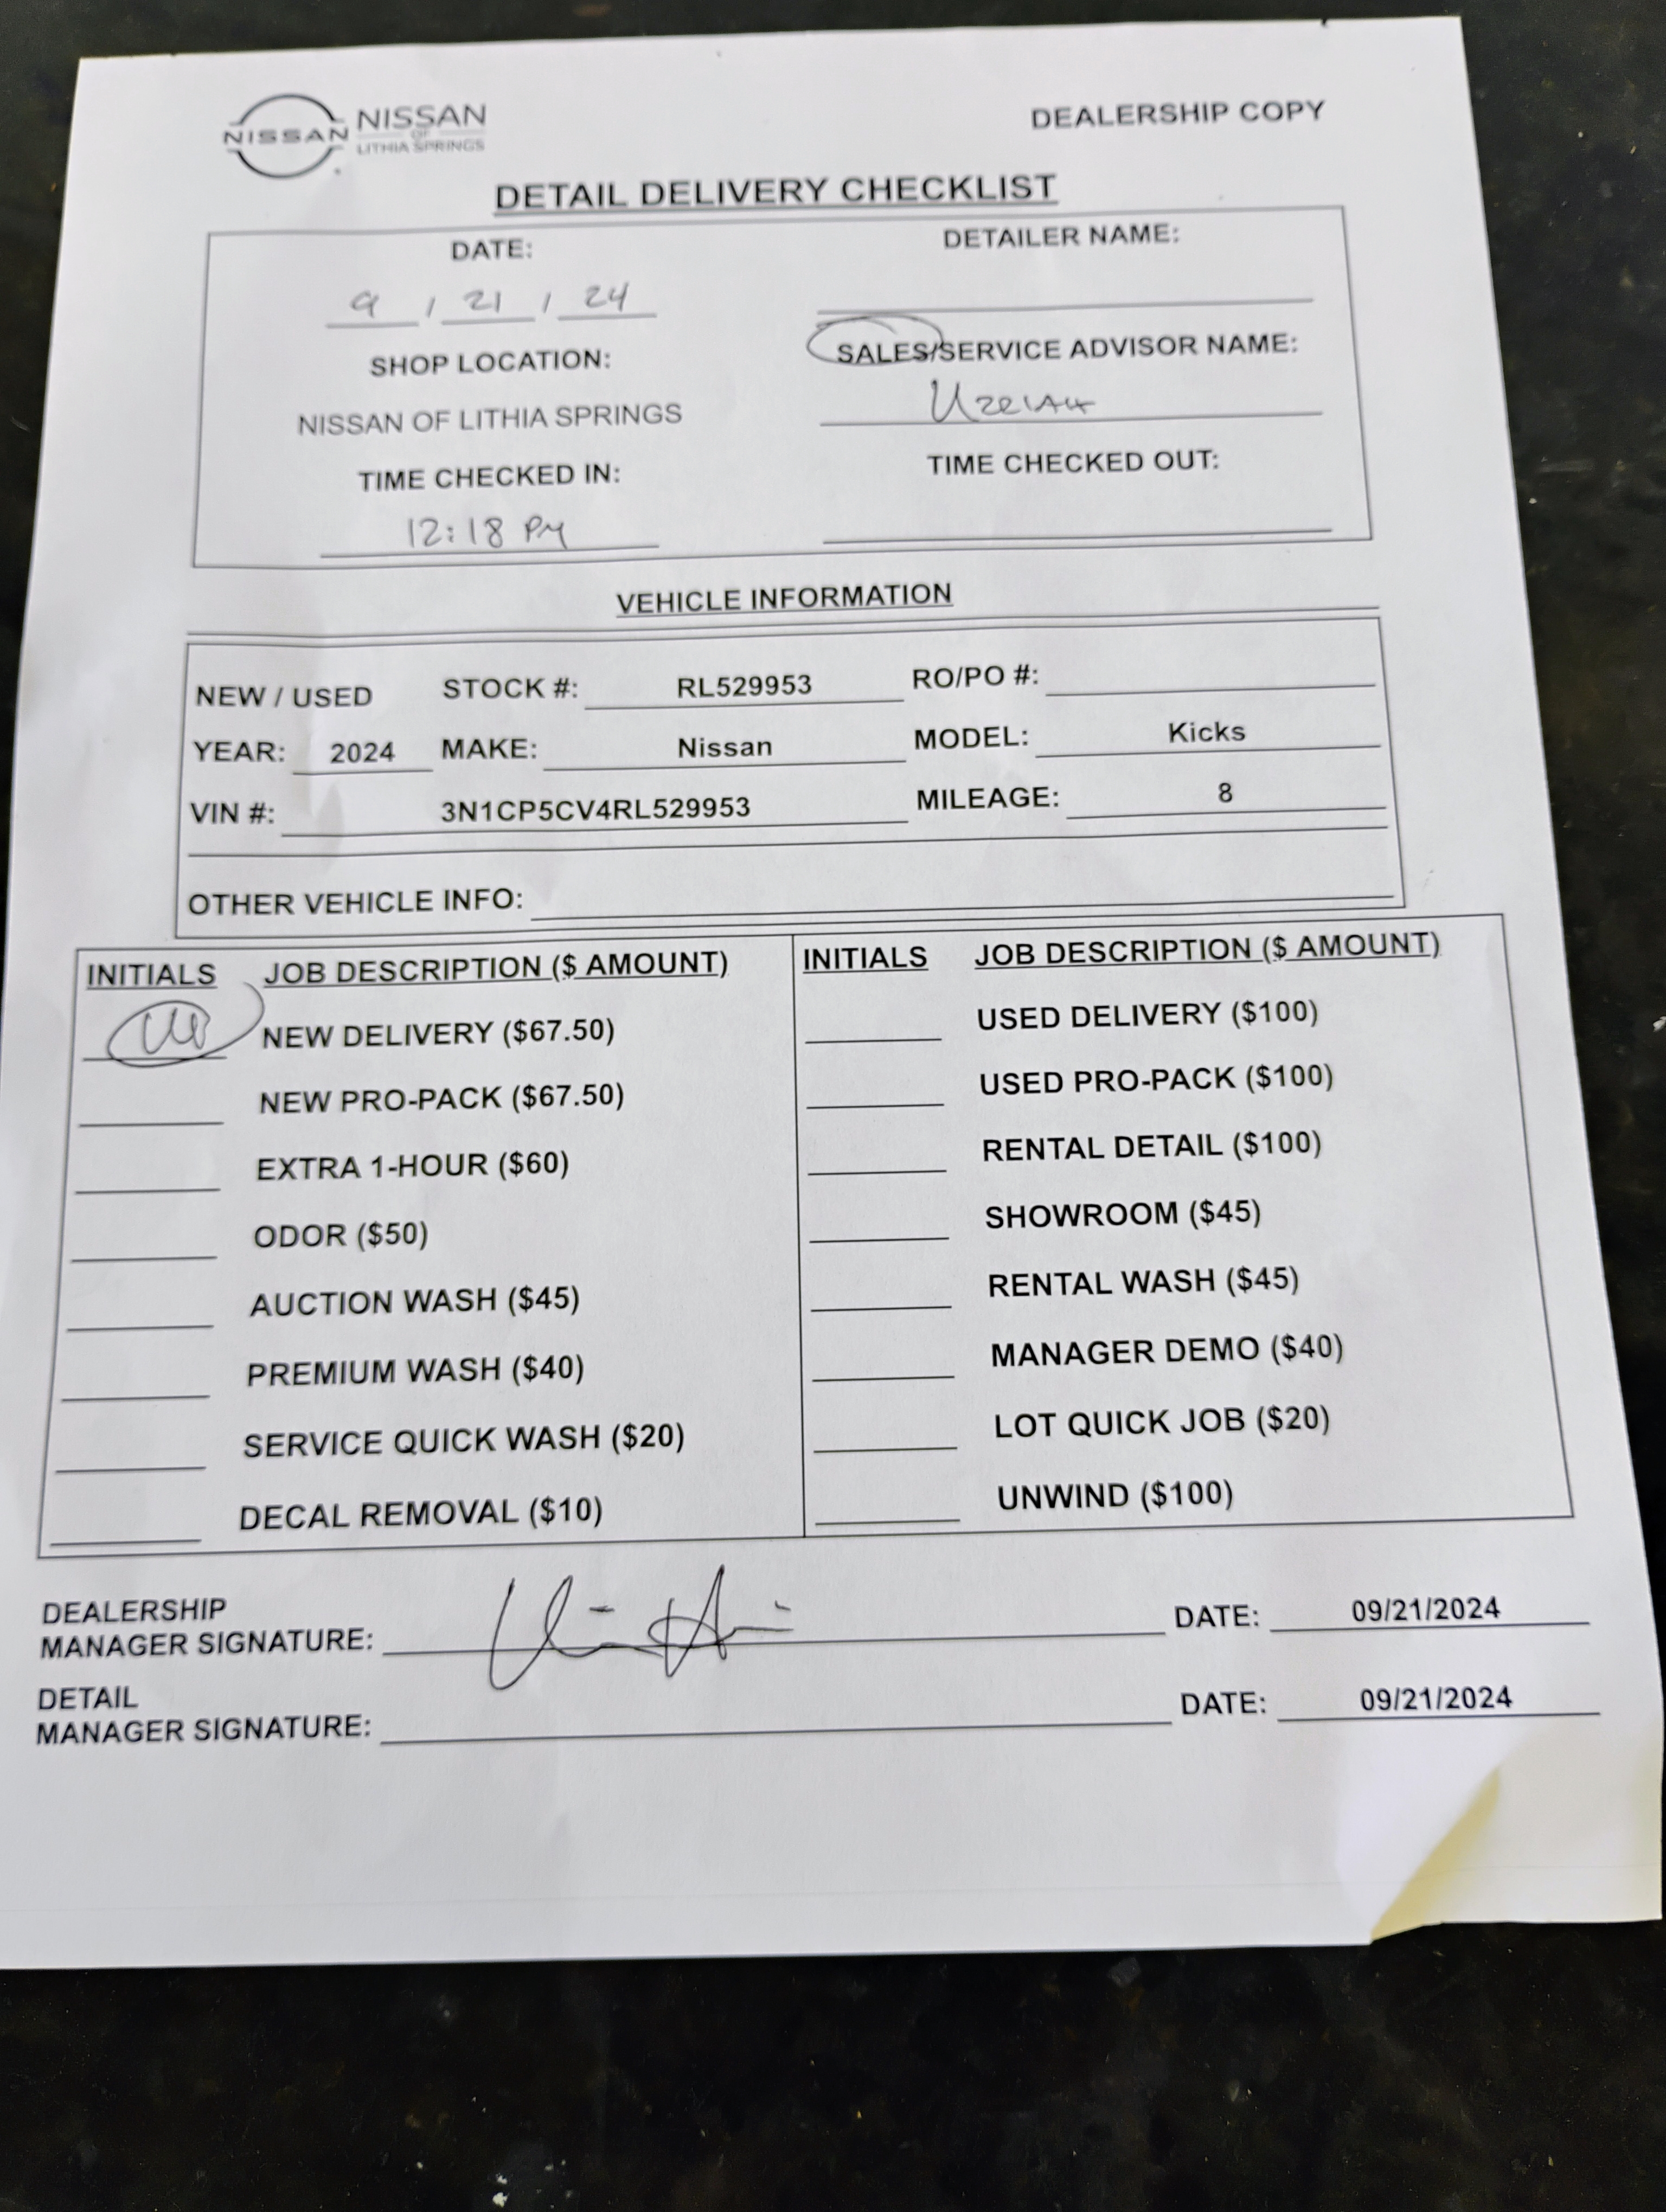 NISSAN
NISSAN
OF
LITHIA SPRINGS
DEALERSHIP COPY
DETAIL DELIVERY CHECKLIST
DATE:
9 / 21 / 24
DETAILER NAME:
SHOP LOCATION:
NISSAN OF LITHIA SPRINGS
SALES/SERVICE ADVISOR NAME:
TIME CHECKED IN:
12:18 PM
TIME CHECKED OUT:
VEHICLE INFORMATION
NEW / USED STOCK #: RL529953 RO/PO #:
YEAR: 2024 MAKE: Nissan MODEL: Kicks
VIN #: 3N1CP5CV4RL529953 MILEAGE: 8
OTHER VEHICLE INFO:
INITIALS JOB DESCRIPTION ($ AMOUNT)
NEW DELIVERY ($67.50)
NEW PRO-PACK ($67.50)
EXTRA 1-HOUR ($60)
ODOR ($50)
AUCTION WASH ($45)
PREMIUM WASH ($40)
SERVICE QUICK WASH ($20)
DECAL REMOVAL ($10)
INITIALS JOB DESCRIPTION ($ AMOUNT)
USED DELIVERY ($100)
USED PRO-PACK ($100)
RENTAL DETAIL ($100)
SHOWROOM ($45)
RENTAL WASH ($45)
MANAGER DEMO ($40)
LOT QUICK JOB ($20)
UNWIND ($100)
DEALERSHIP
MANAGER SIGNATURE: DATE: 09/21/2024
DETAIL
MANAGER SIGNATURE: DATE: 09/21/2024